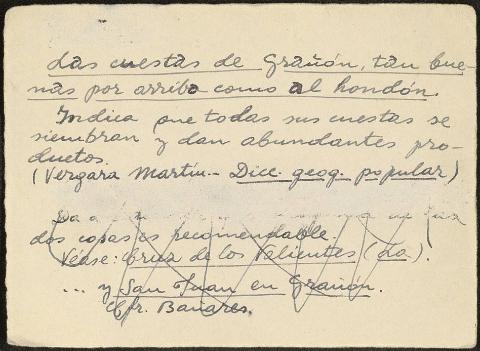 Las cuestas de Grañón, tan bue-
nas por arriba como al hondón.
Indica que todas sus cuestas se
siembran y dan abundantes pro-
ductos.
(Vergara Martín.- Dicc. geog. popular)
Da a
dos copas es recomendable.
Véase: Cruz de los Valientes (La).
... y San Juan en Grañón.
Cfr. Bañares.